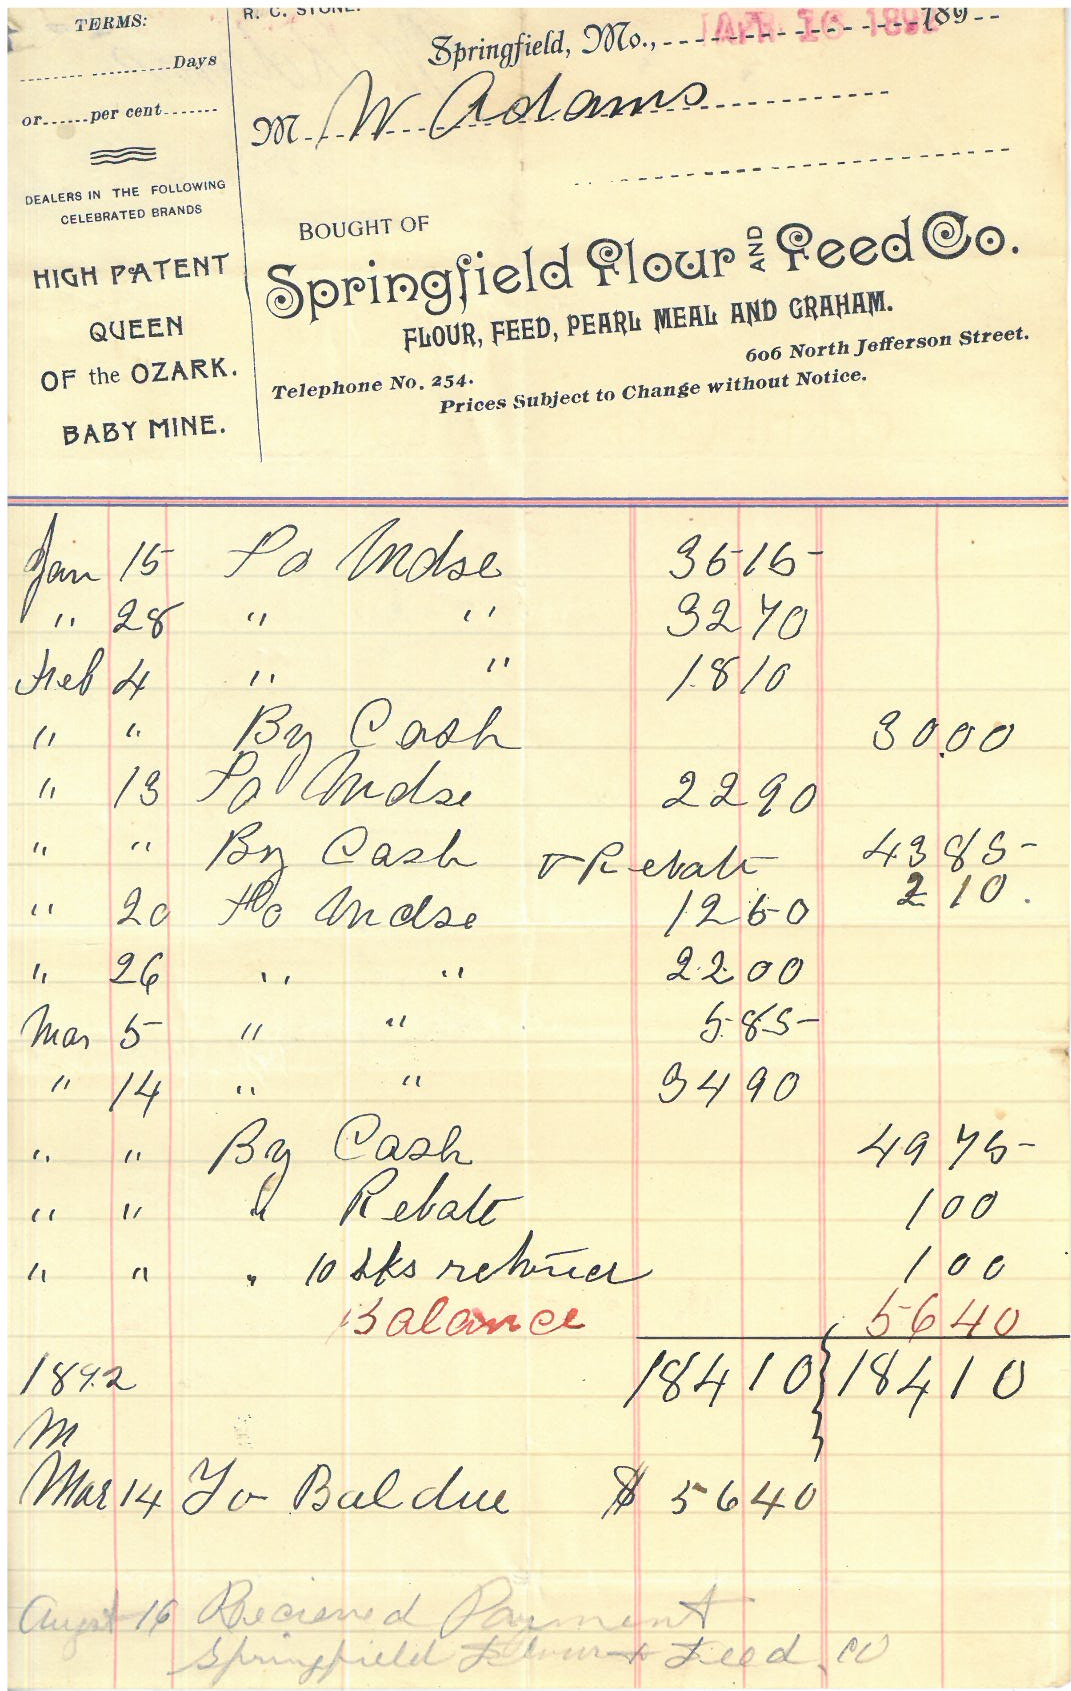 TERMS:
R. C. STONE.
Springfield, Mo., 189
APR 16 189
Days
or per cent
M W Adams
DEALERS IN THE FOLLOWING
CELEBRATED BRANDS
HIGH PATENT
QUEEN
OF the OZARK.
BABY MINE.
BOUGHT OF
Springfield Flour AND Feed Co.
FLOUR, FEED, PEARL MEAL AND GRAHAM.
606 North Jefferson Street.
Telephone No. 254.
Prices Subject to Change without Notice.
Jan 15 To Mdse 35 15
" 28 " " 32 70
Feb 4 " " 18 10
" " By Cash 30.00
" 13 To Mdse 22 90
" " By Cash & Rebate 43 85
2 10.
" 20 To Mdse 12 50
" 26 " " 22 00
Mar 5 " " 5 85
" 14 " " 34 90
" " By Cash 49 75
" " " Rebate 1 00
" " " 10 sks returned 1 00
Balance 56 40
1892 184 10 184 10
M
Mar 14 To Bal due $ 56 40
August 16 Recieved Payment
Springfield Flour & Feed Co